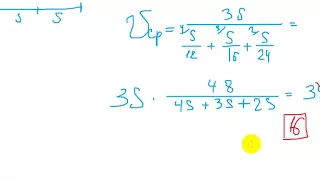 S S
Vср = 3S / (⁴\S/12 + ³\S/16 + ²\S/24) =
3S · 48 / (4S + 3S + 2S) = 3
16